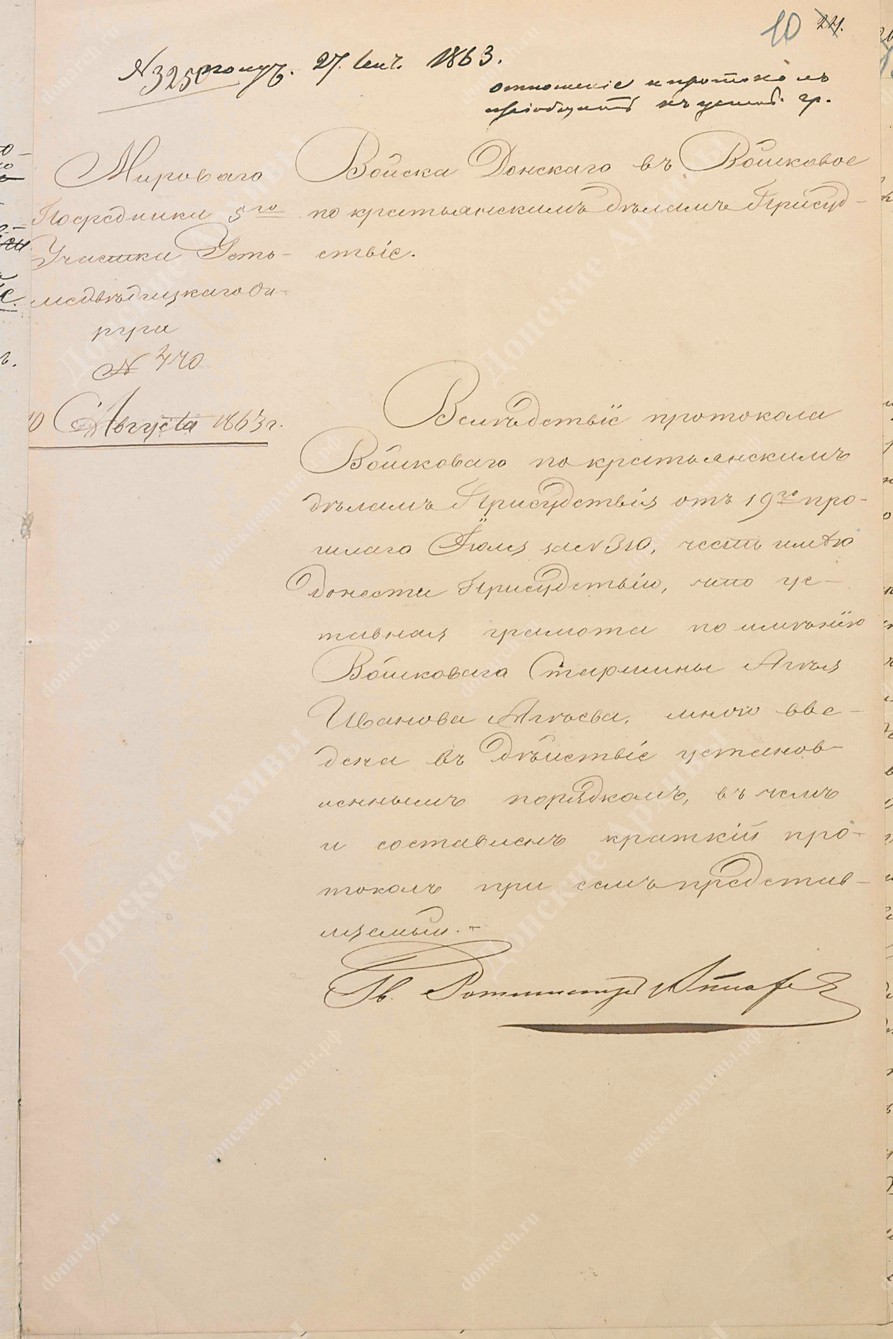 10 24.
27. Сент. 1863.
отношеніе и протоколъ
пріобщить къ устав. гр.
Мироваго
Посредника 5го
Участка Усть-
медвѣдицкаго Ок-
руга
№ 440
10 Августа 1863 г.
Войска Донскаго въ Войсковое
по крестьянскимъ дѣламъ Присуд-
ствіе.
Вслѣдствіе протокола
Войсковаго по крестьянскимъ
дѣламъ Присудствія отъ 19го про-
шлаго Іюля за № 310, честь имѣю
донести Присудствію, что ус-
тавная грамота по имѣнію
Войсковаго Старшины Агѣя
Иванова Агѣева, мною вве-
дена въ дѣйствіе установ-
леннымъ порядкомъ, въ чемъ
и составленъ краткій про-
токолъ при семъ представ-
ляемый.-
Гв. Ротмистръ
Донские Архивы
донскиеархивы.рф
donarch.ru